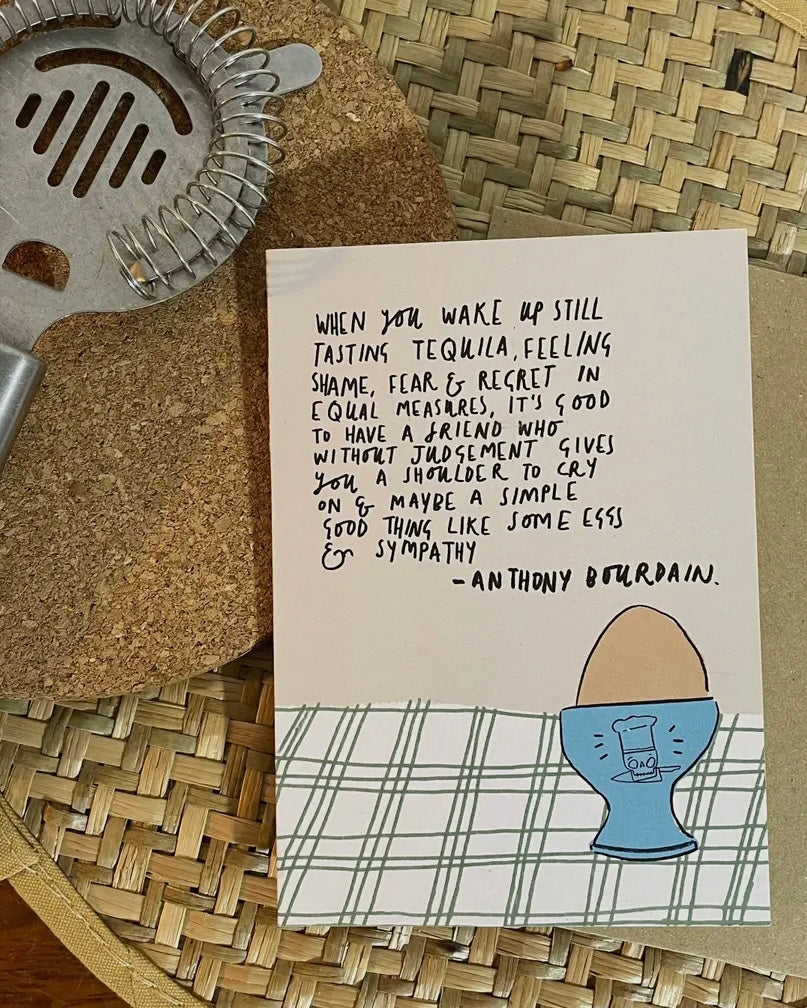 WHEN YOU WAKE UP STILL
TASTING TEQUILA, FEELING
SHAME, FEAR & REGRET IN
EQUAL MEASURES, IT'S GOOD
TO HAVE A FRIEND WHO
WITHOUT JUDGEMENT GIVES
YOU A SHOULDER TO CRY
ON & MAYBE A SIMPLE
GOOD THING LIKE SOME EGGS
& SYMPATHY
-ANTHONY BOURDAIN.